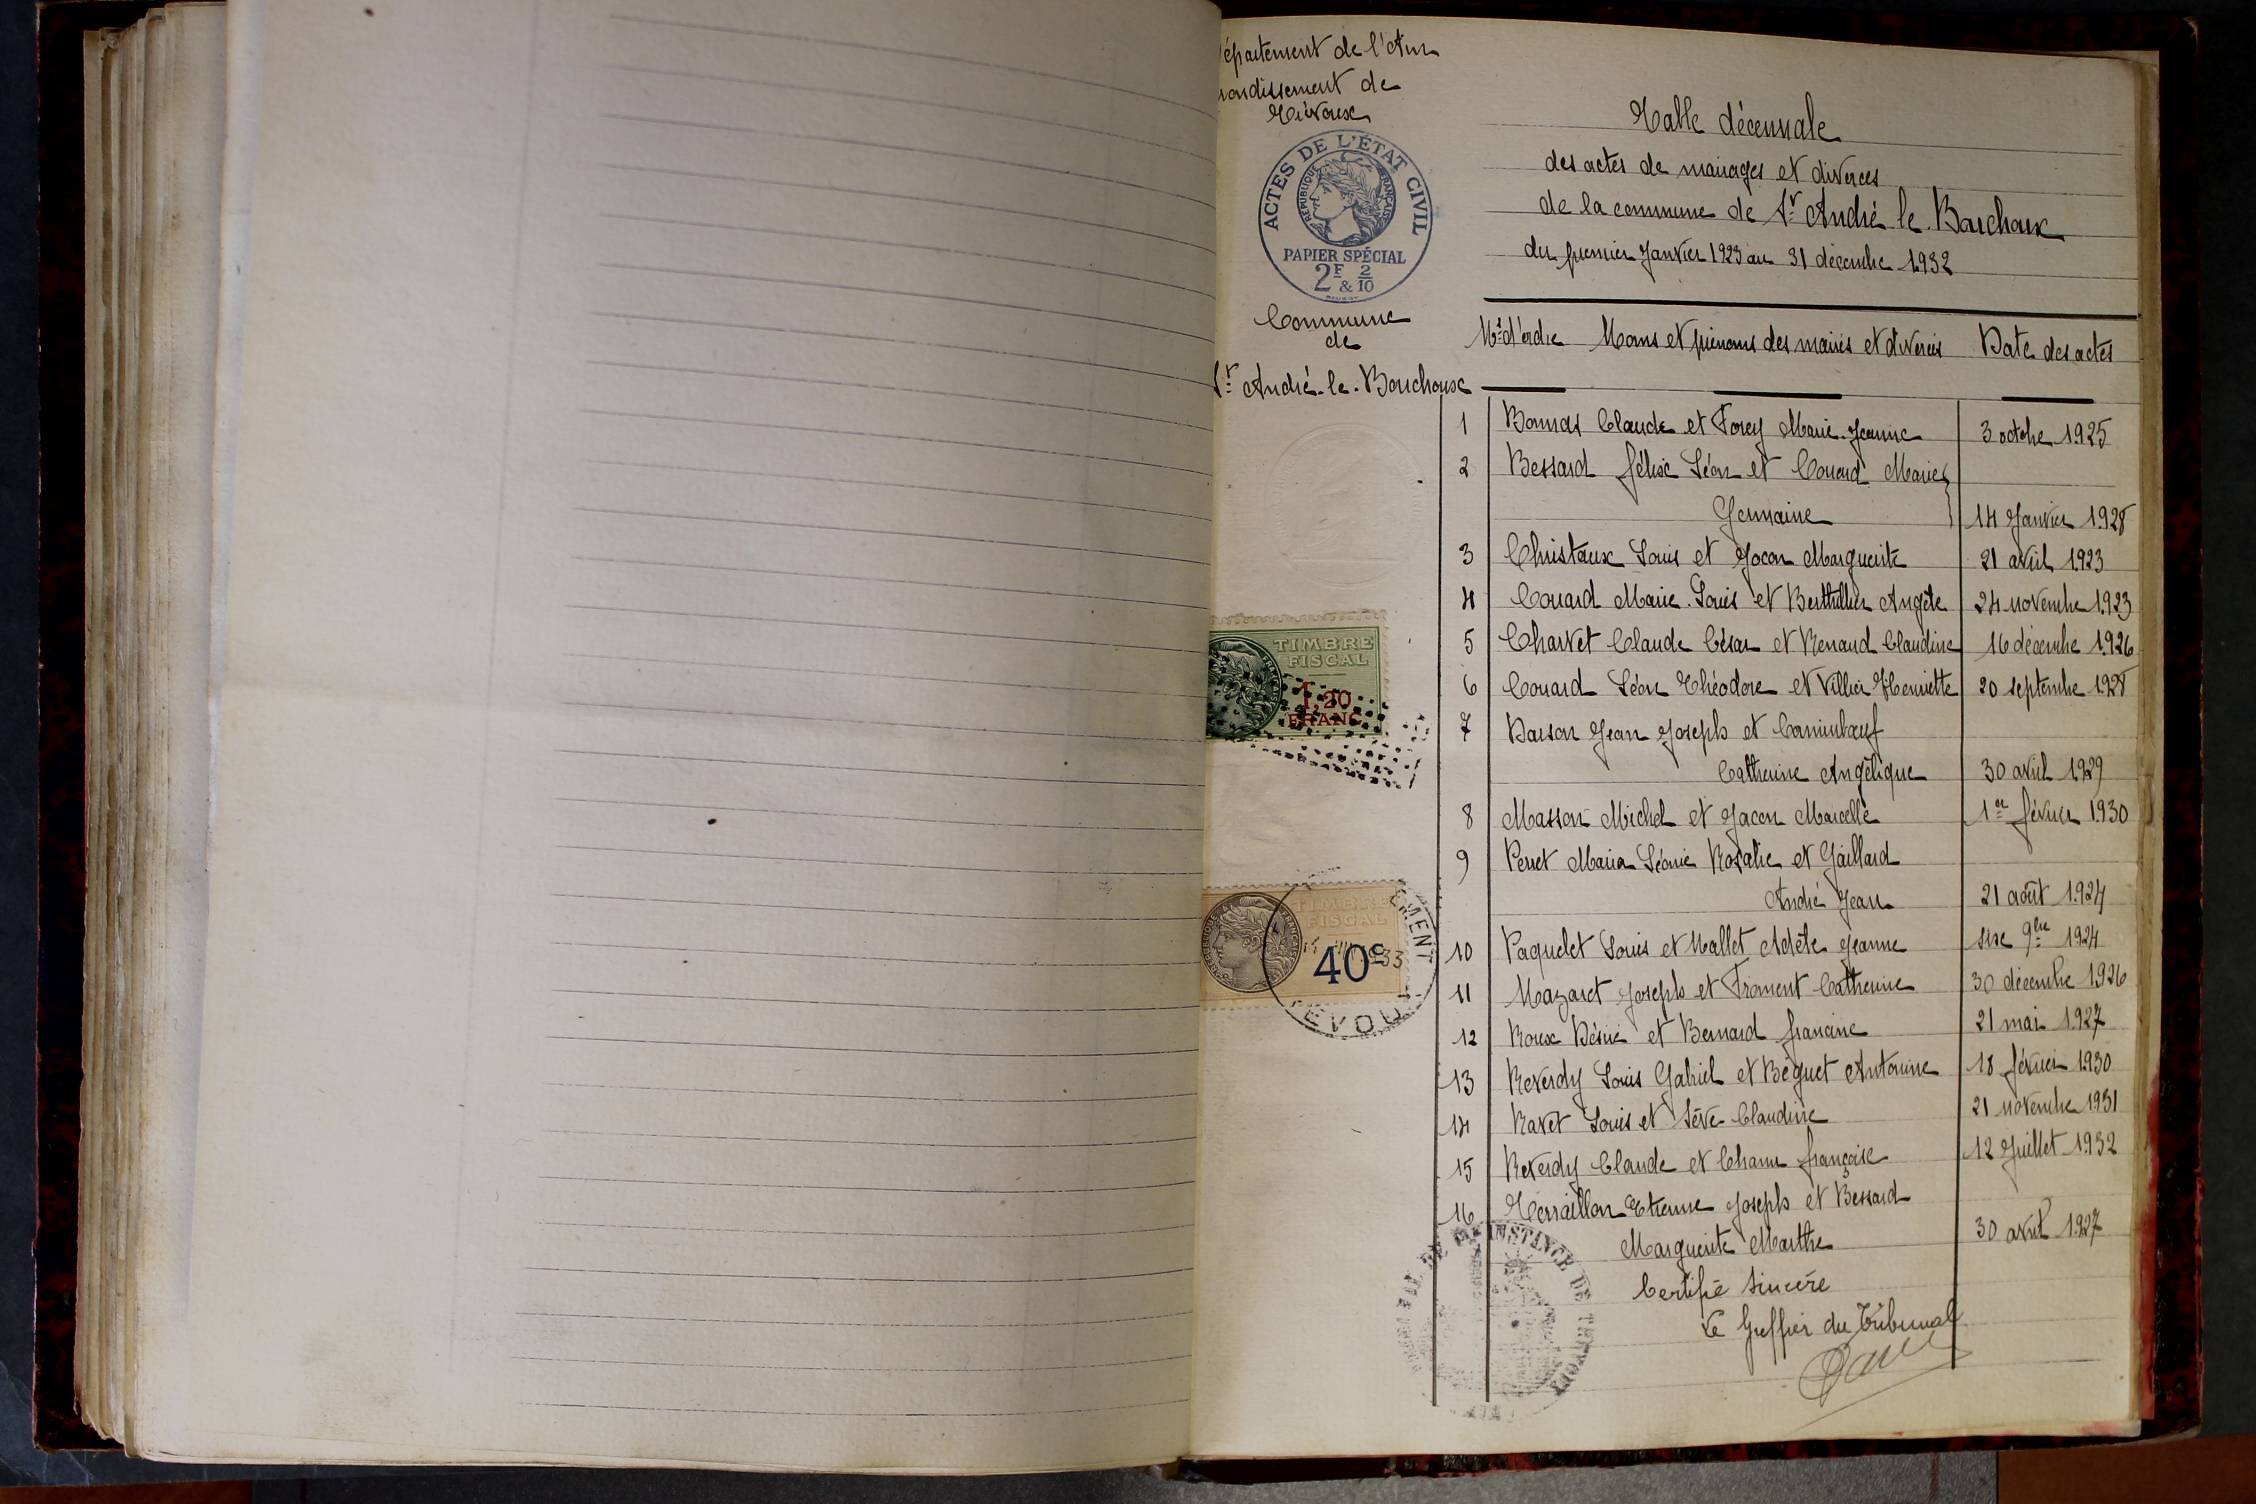 épartement de l'Ain
rondissement de
Trévoux
ACTES DE L'ÉTAT CIVIL
RÉPUBLIQUE FRANÇAISE
PAPIER SPÉCIAL
2F & 2/10
Commune
de
St André-le-Bouchoux
TIMBRE
FISCAL
1,20
FRANC
TIMBRE
FISCAL
40c
Table décennale
des actes de mariages et divorces
de la commune de St André le Bouchoux
du premier Janvier 1923 au 31 décembre 1932
Nos d'ordre Noms et prénoms des mariés et divorcés Date des actes
1 Bonnet Claude et Forey Marie-Jeanne 3 octobre 1925
2 Bessard Félix Léon et Couard Marie
Germaine 14 Janvier 1928
3 Christaux Louis et Jocon Marguerite 21 avril 1923
4 Couard Marie-Louis et Berthillier Angèle 24 novembre 1923
5 Charvet Claude César et Renaud Claudine 16 décembre 1926
6 Couard Léon Théodore et Villier Henriette 20 septembre 1928
7 Darson Jean Joseph et Corniubœuf
Catherine Angélique 30 avril 1929
8 Masson Michel et Jacon Marcelle 1er février 1930
9 Perret Maria Léonie Rosalie et Gaillard
André Jean 21 août 1924
10 Paquelet Louis et Mallet Adèle Jeanne six 9bre 1924
11 Mazaret Joseph et Froment Catherine 30 décembre 1926
12 Roux Désiré et Bernard francine 21 mai 1927
13 Reverdy Louis Gabriel et Béguet Antonine 18 février 1930
14 Ravet Louis et Sève Claudine 21 novembre 1931
15 Reverdy Claude et Chanu françoise 12 Juillet 1932
16 Terraillon Etienne Joseph et Bessard
Marguerite Marthe 30 avril 1927
Certifié sincère
Le Greffier du Tribunal